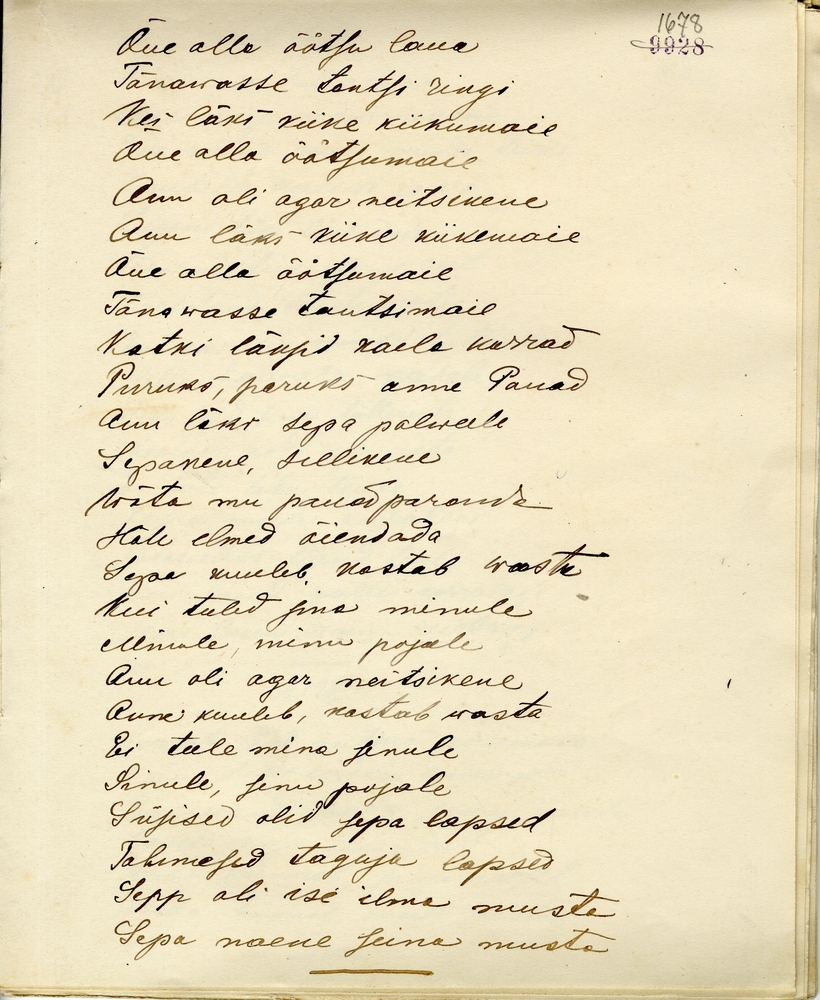 1678
9928
Õue alla öötsu laua
Tänawasse tantsi ringi
Kes läks kiike kiikumaie
Õue alla öötsumaie
Ann oli agar neitsikene
Ann läks kiike kiikemaie
Õue alla öötsumaie
Tänawasse tantsimaie
Katki läksid kaela karrad
Puruks, paruks anne Panad
Ann läks sepa palwele
Sepakene, sellikene
Wõta mu panad paranda
elmed õiendada
Sepa kuuleb, kostab wasta
Kui tuled sina minule
Minule, minu pojale
Ann oli agar neitsikene
Anne kuuleb, kostab wasta
Ei tule mina sinule
Sinule, sinu pojale
Süsised olid sepa lapsed
Tahmased taguja lapsed
Sepp oli ise ilma musta
Sepa naene seina musta